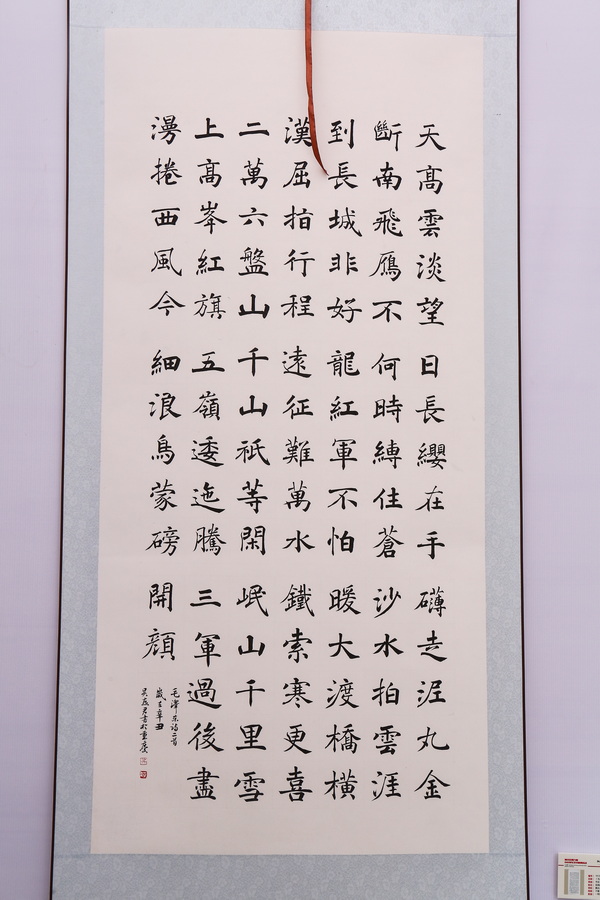 天髙雲淡望
斷南飛鴈不
到長城非好
漢屈指行程
二萬六盤山
上髙峯紅旗
漫捲西風今
日長纓在手
何時縛住蒼
龍紅軍不怕
遠征難萬水
千山祇等閑
五嶺逶迤騰
細浪烏蒙磅
礴走泥丸金
沙水拍雲涯
暖大渡橋橫
鐵索寒更喜
岷山千里雪
三軍過後盡
開顏
毛澤东詩二首
歲在辛丑
書於重慶